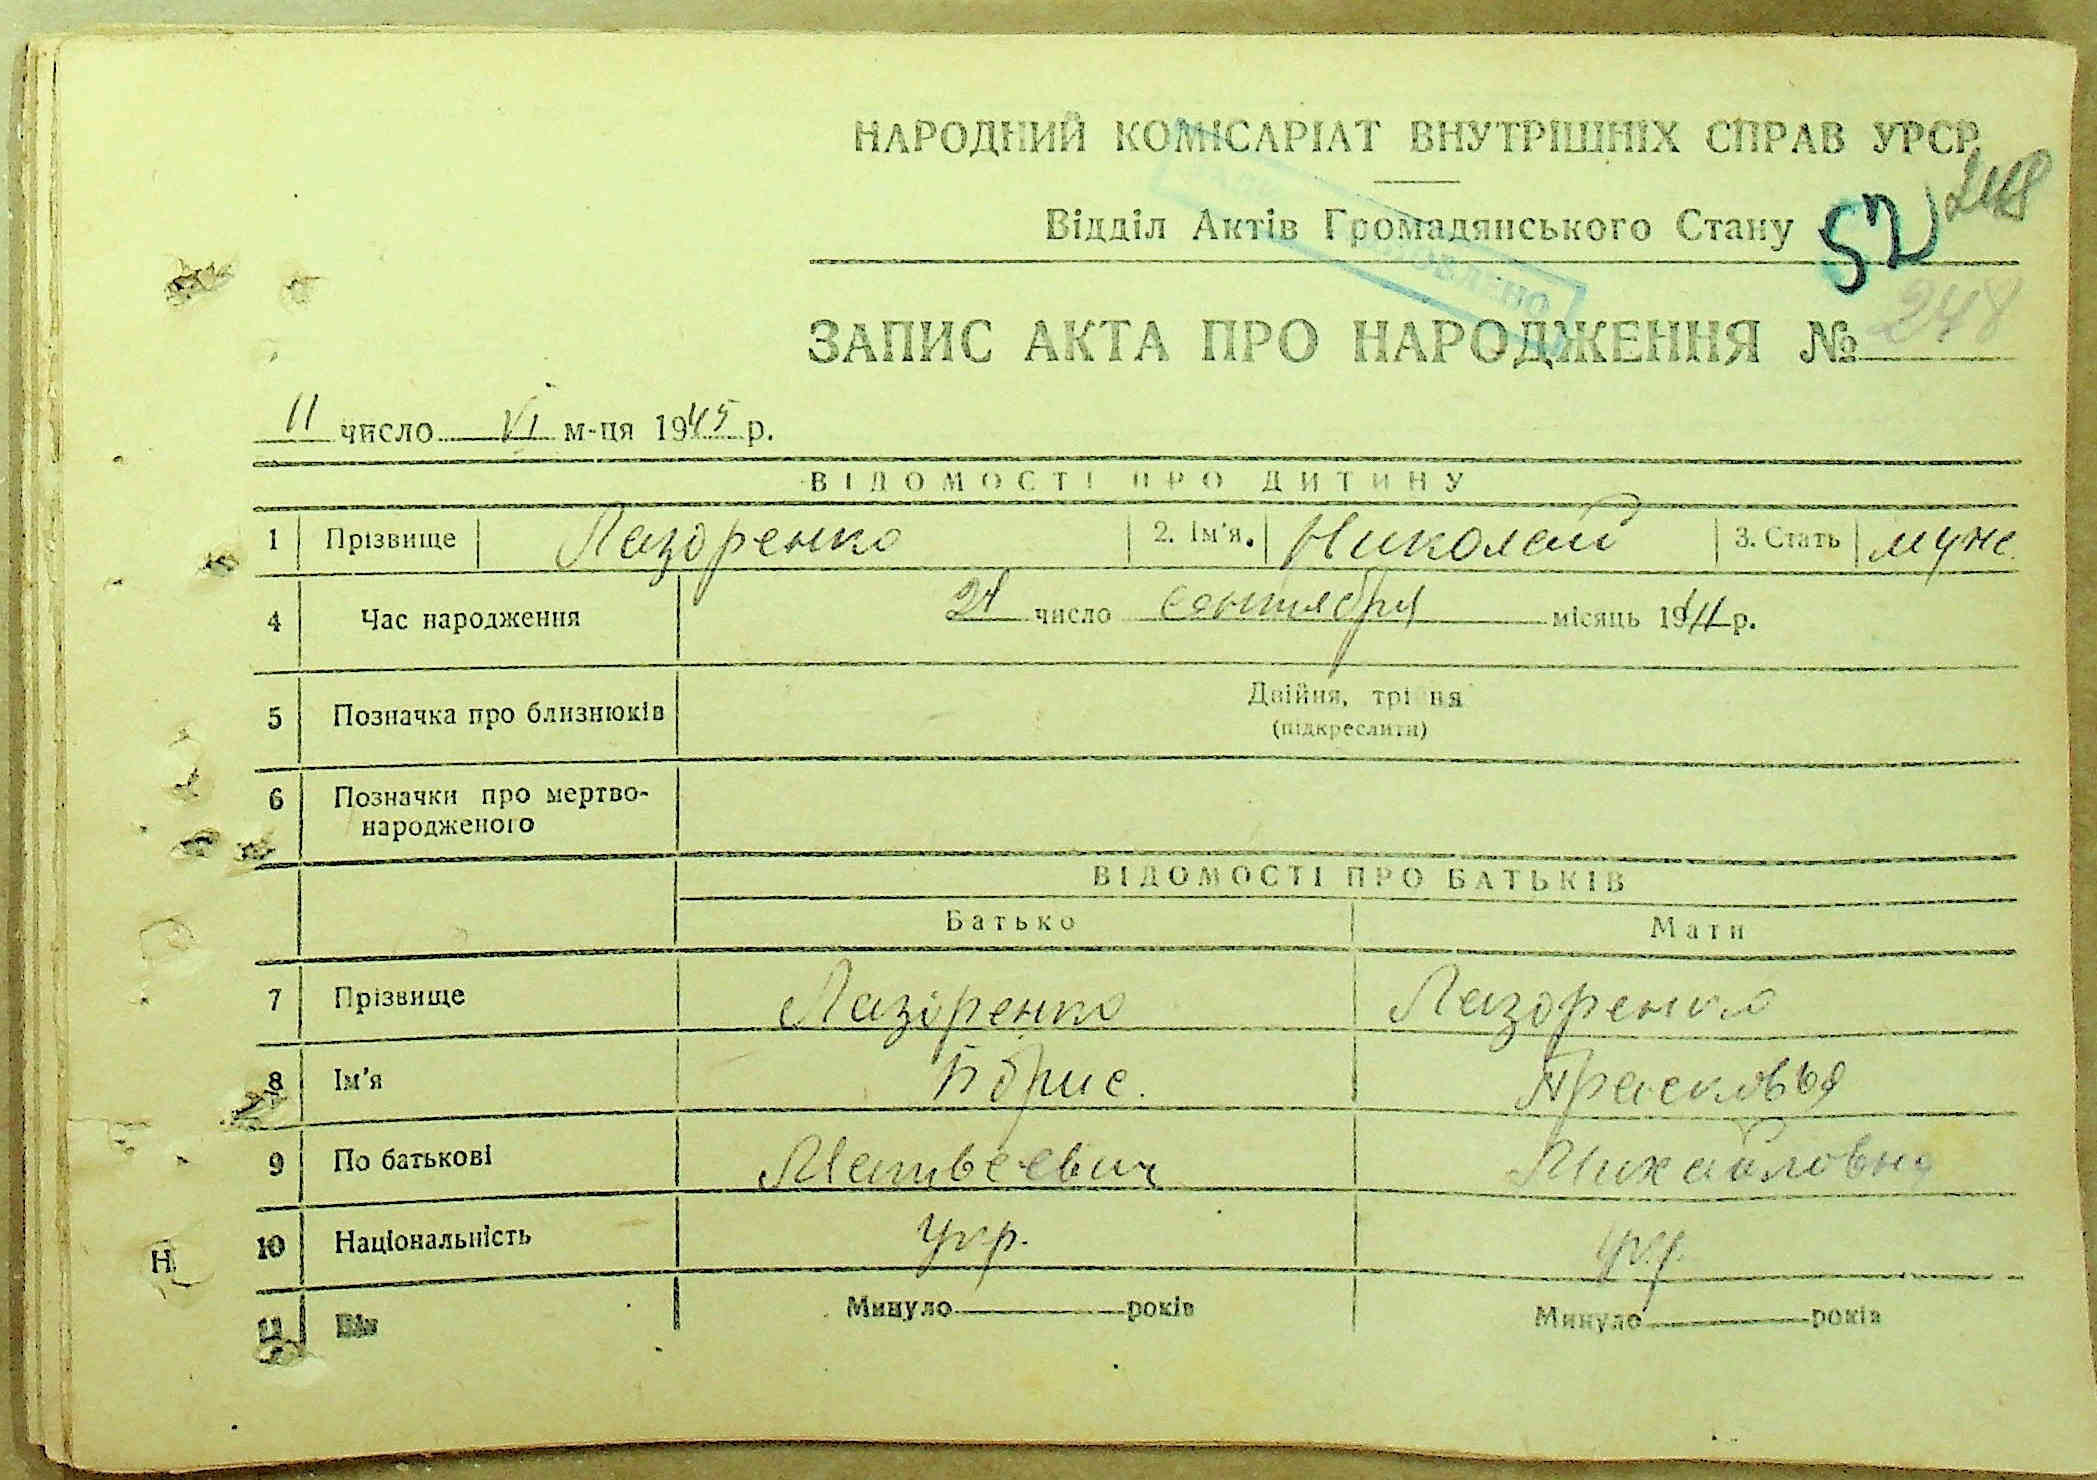 НАРОДНИЙ КОМІСАРІАТ ВНУТРІШНІХ СПРАВ УРСР
248
Відділ Актів Громадянського Стану
52
ЗАПИС АКТА ПРО НАРОДЖЕННЯ № 248
11 число VI м-ця 1945 р.
ВІДОМОСТІ ПРО ДИТИНУ
1 Прізвище Лазоренко 2. Ім'я. Николай 3. Стать муж
4 Час народження число сентября місяць р.
5 Позначка про близнюків Двійня, трійня
(підкреслити)
6 Позначки про мертво-
народженого
ВІДОМОСТІ ПРО БАТЬКІВ
Батько Мати
7 Прізвище Лазоренко Лазоренко
8 Ім'я Борис. Прасковья
9 По батькові Матвеевич Михайловна
10 Національність укр. укр.
Н
11 Вік Минуло років Минуло років